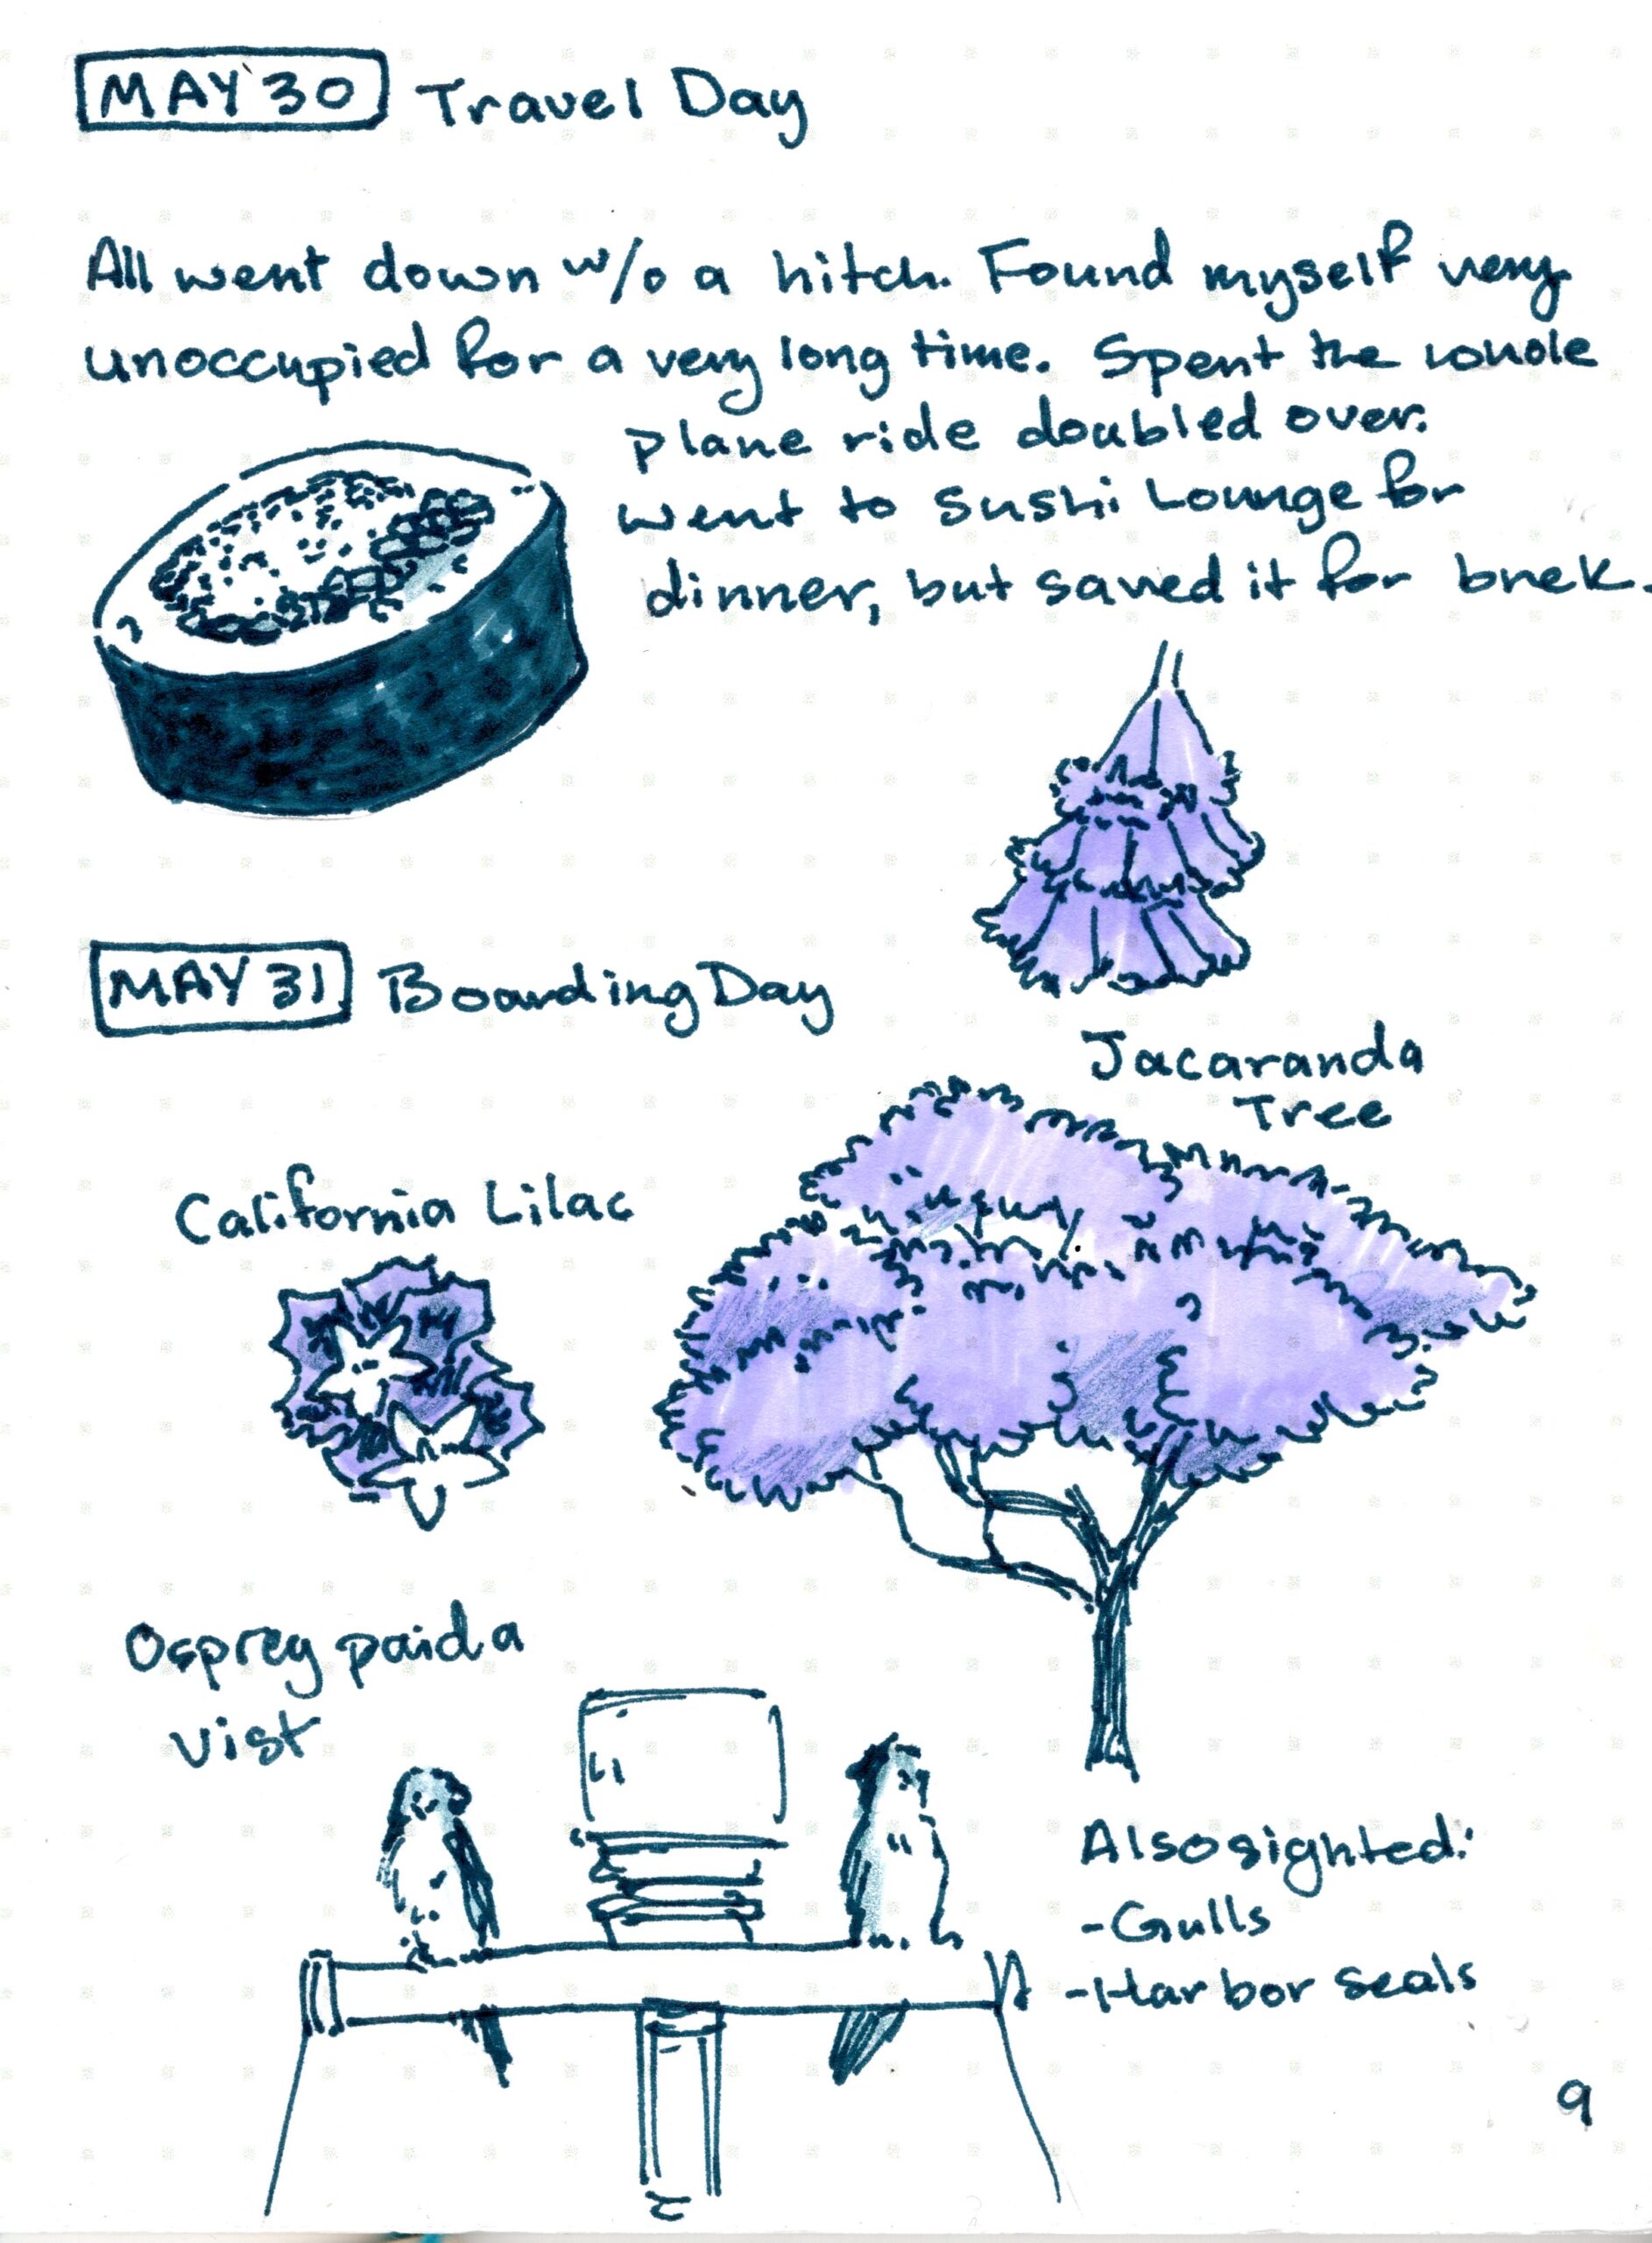 MAY 30 Travel Day
All went down w/o a hitch. Found myself very
unoccupied for a very long time. Spent the whole
plane ride doubled over.
Went to Sushi Lounge for
dinner, but saved it for brek.
MAY 31 Boarding Day
Jacaranda
Tree
California Lilac
Osprey paid a
vist
Also sighted:
-Gulls
-Harbor seals
9